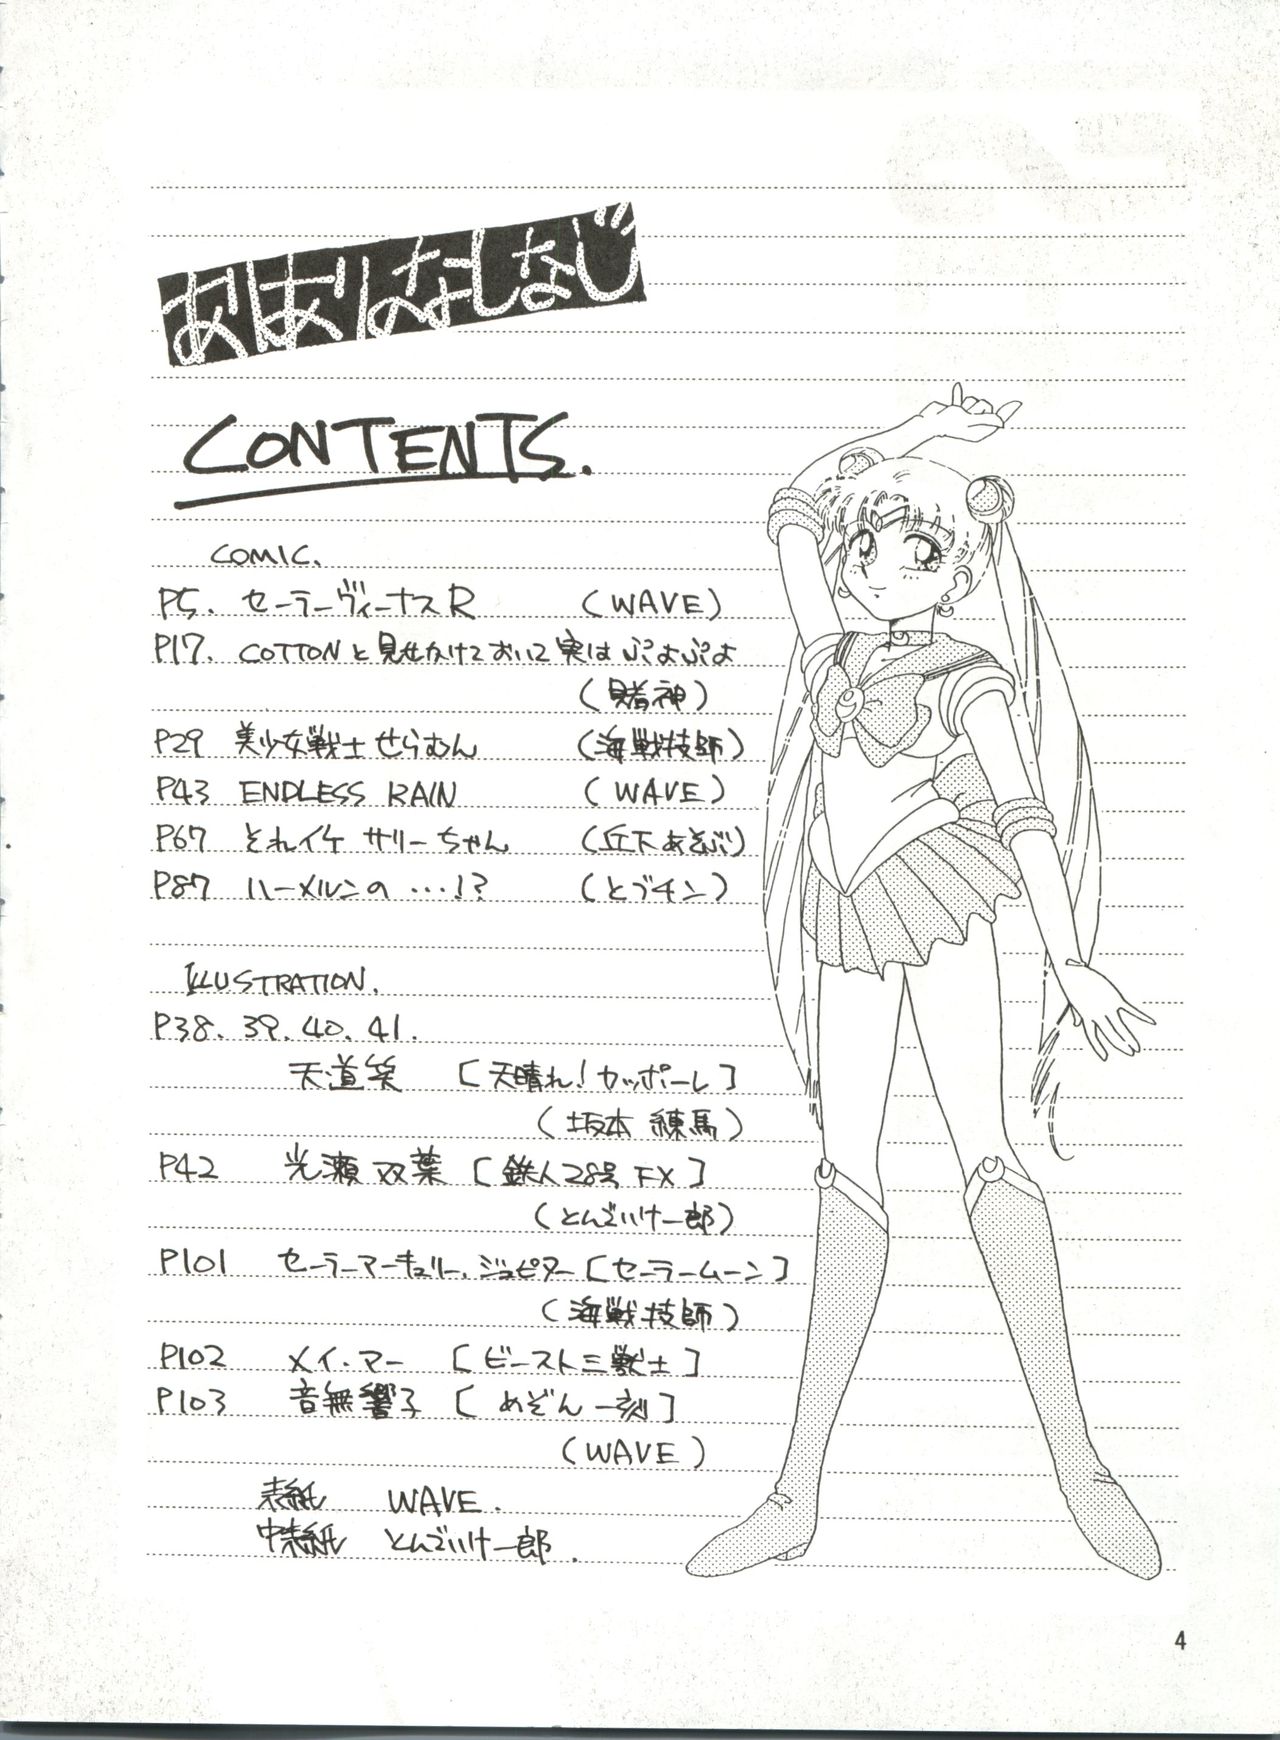 CONTENTS.
COMIC.
P5. セーラーヴィーナスR (WAVE)
P17. COTTONと見せかけておいて実はぷよぷよ
(賭神)
P29 美少女戦士せらむん (海戦技師)
P43 ENDLESS RAIN (WAVE)
P67 それイケ サリーちゃん (丘下あそぶ)
P87 ハーメルンの…!? (とブチン)
ILLUSTRATION.
P38.39.40.41.
天道笑 [天晴れ!カッポーレ]
(坂本 練馬)
P42 光瀬 双葉 [鉄人28号 FX]
(とんでいけ一郎)
P101 セーラーマーキュリー.ジュピター[セーラームーン]
(海戦技師)
P102 メイ・マー [ビースト三獣士]
P103 音無響子 [めぞん一刻]
(WAVE)
表紙 WAVE.
中表紙 とんでいけ一郎.
4